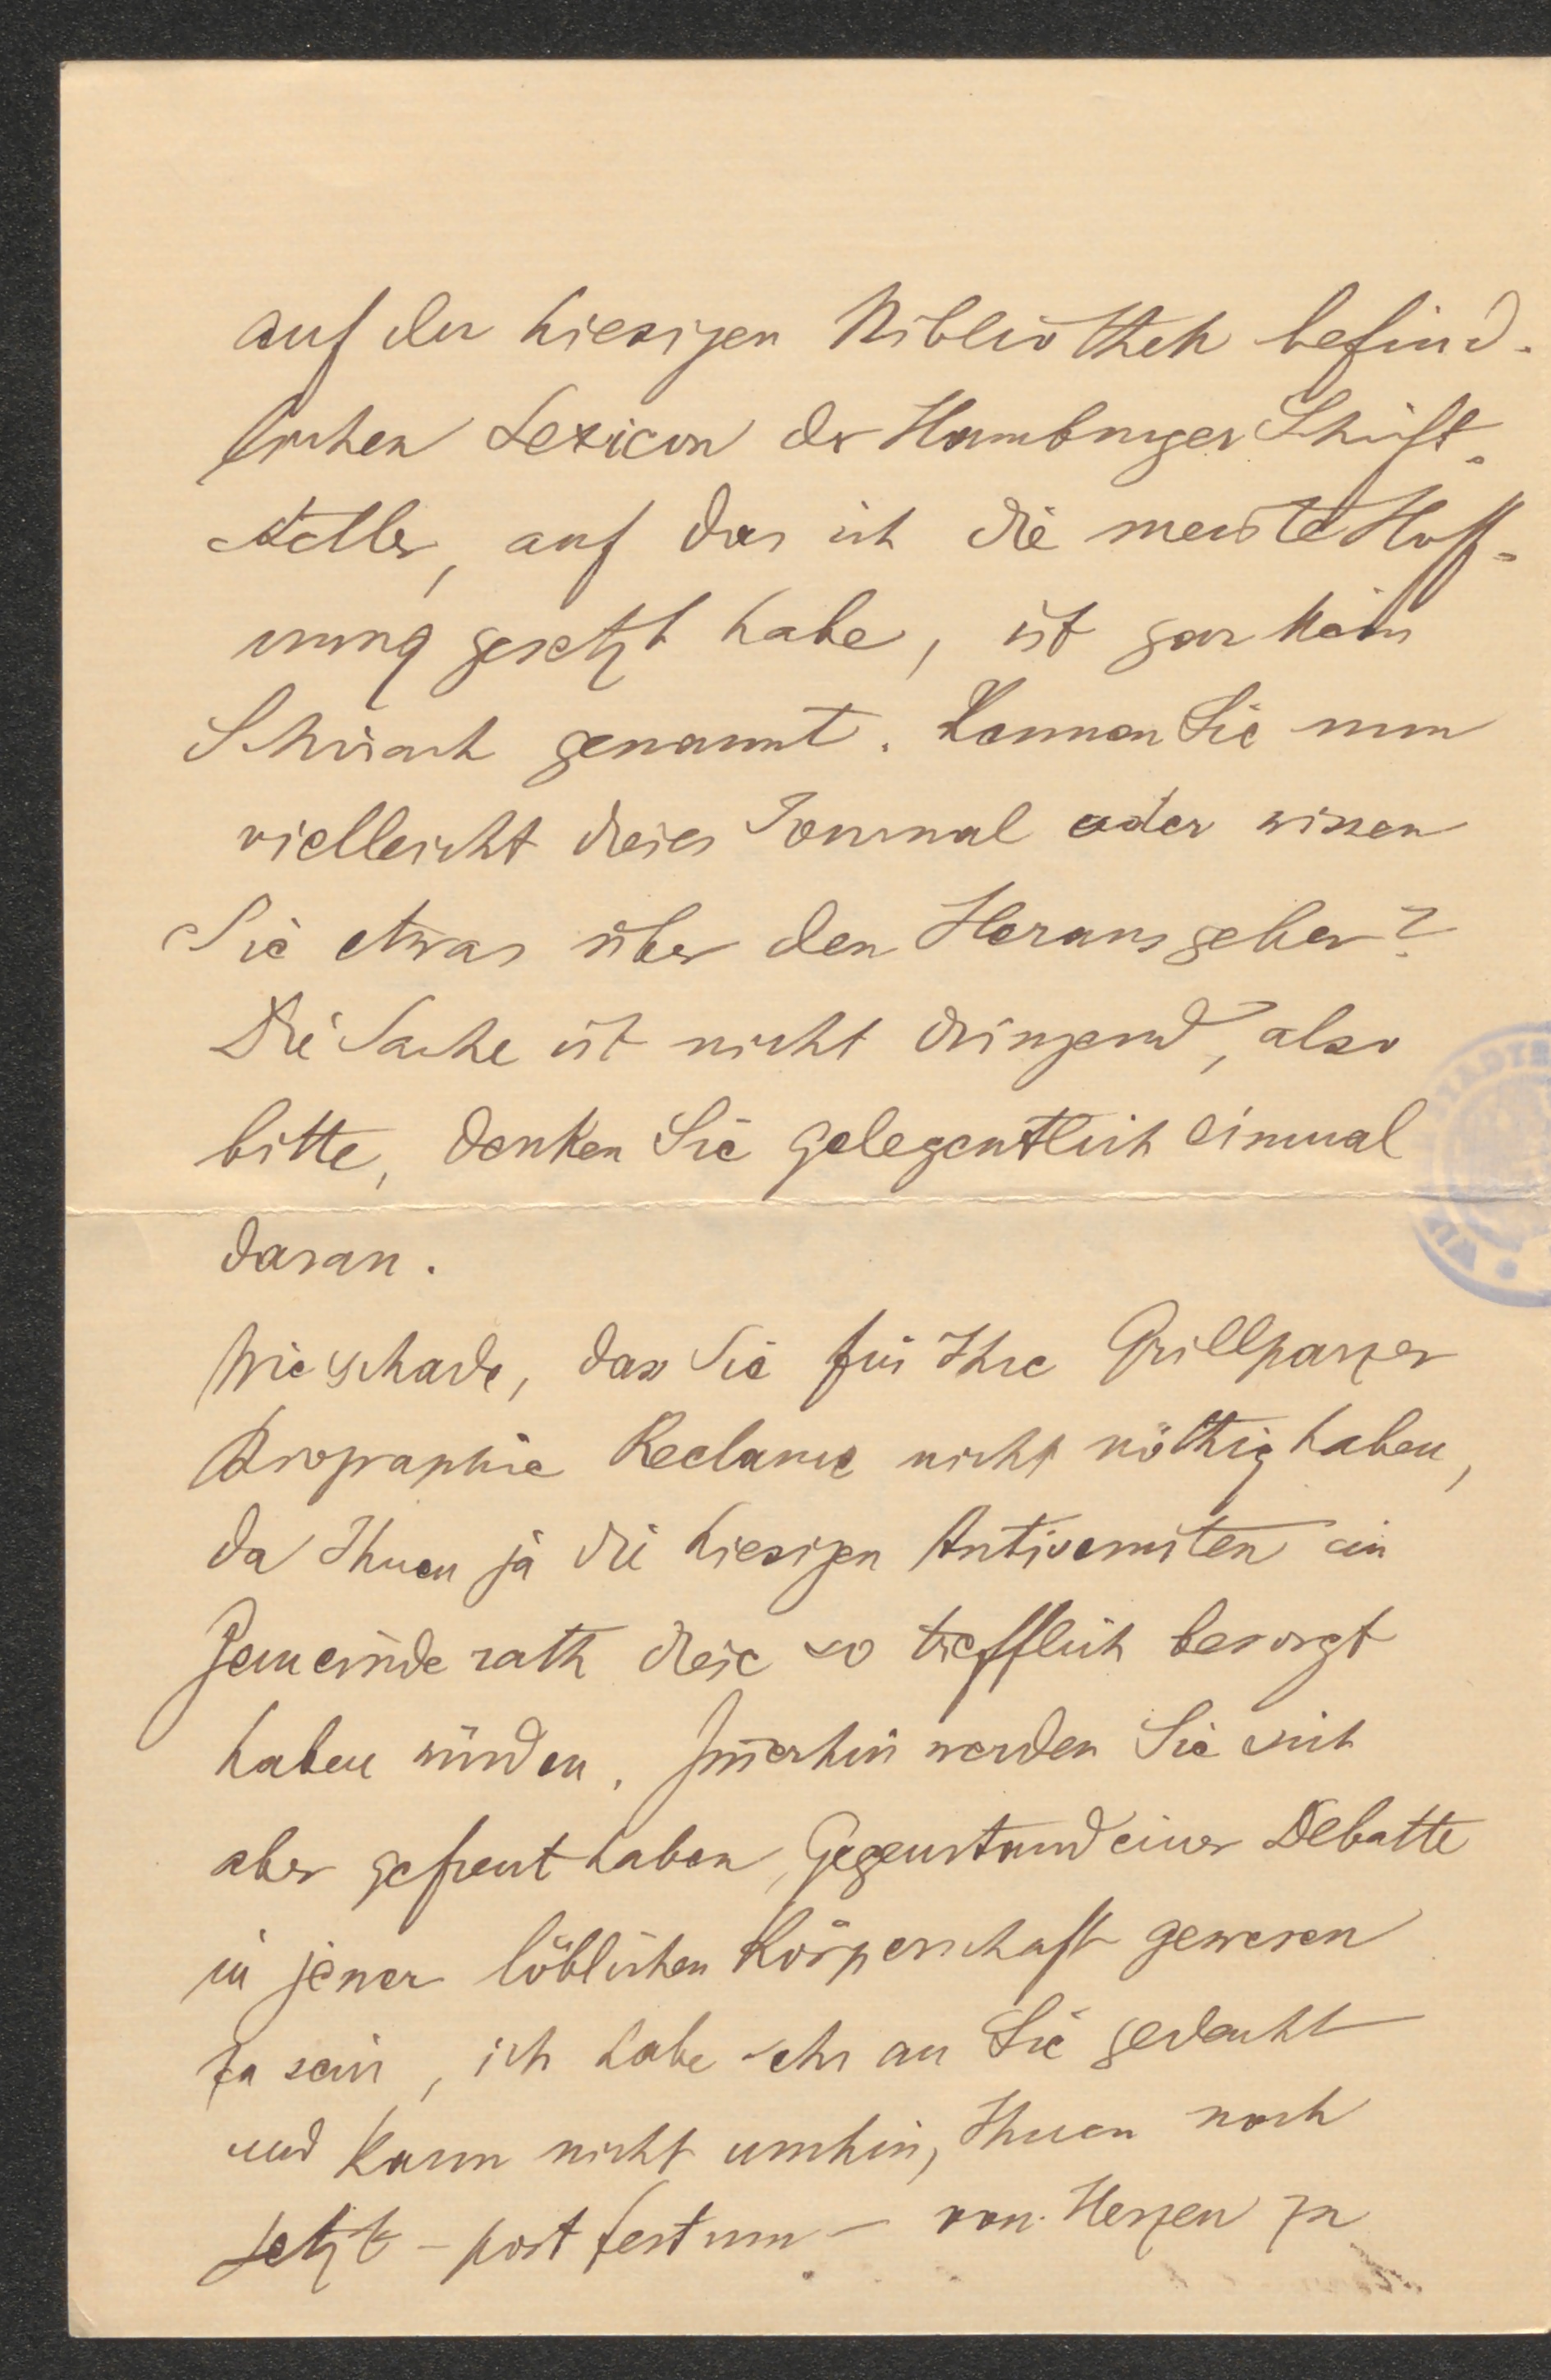 auf der hiesigen Bibliothek befind-
lichen Lexicon der Hamburger Schrift-
steller, auf das ich die meiste Hoff-
nung gesetzt habe, ist gar kein
Schirach genannt. Kennen Sie nun
vielleicht dieses Journal oder wissen
Sie etwas über den Herausgeber?
Die Sache ist nicht dringend, also
bitte, denken Sie gelegentlich einmal
daran.
Wie schade, dass Sie für Ihre Grillparzer
Biographie Reclame nicht nöthig haben,
da Ihnen ja die hiesigen Antisemiten im
Gemeinderath diese so trefflich besorgt
haben würden. Im̄erhin werden Sie sich
aber gefreut haben, Gegenstand einer Debatte
in jener löblichen Körperschaft gewesen
zu sein, ich habe sehr an Sie gedacht
und kann nicht umhin, Ihnen noch
jetzt – post festum – von Herzen zu